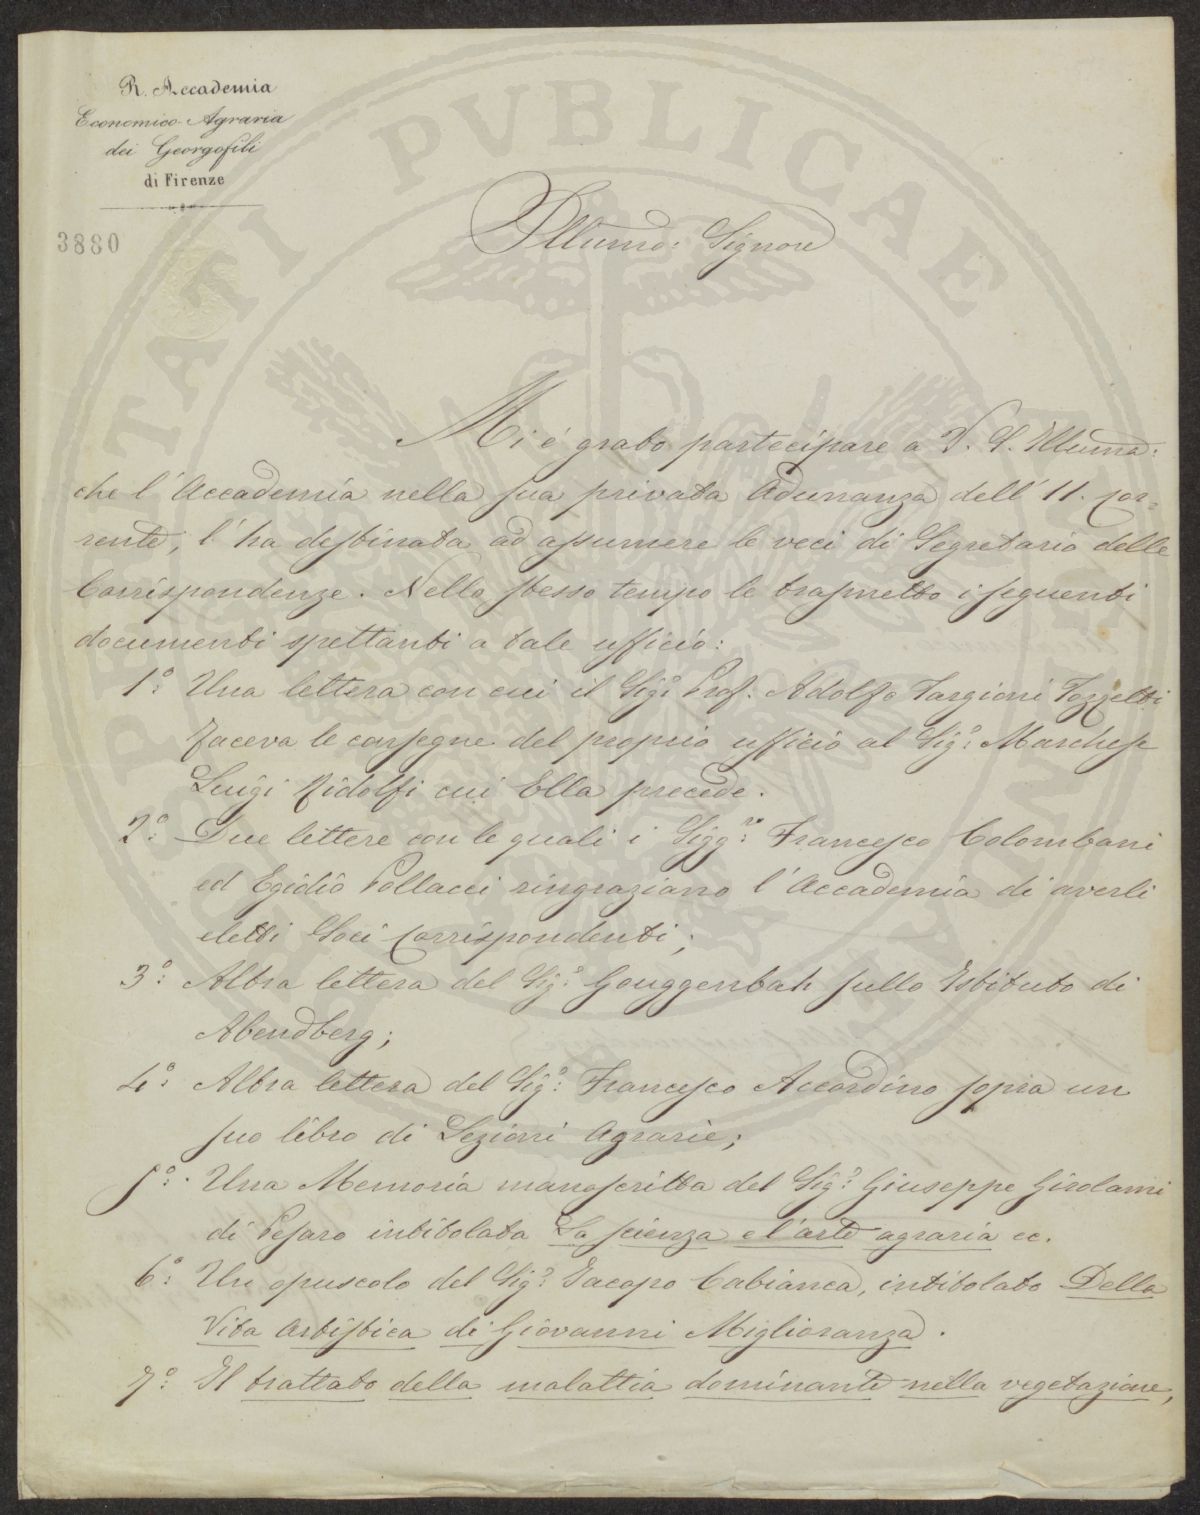 R. Accademia
Economico-Agraria
dei Georgofili
di Firenze
3880
PROSPERITATI PUBLICAE AUGENDAE
Illumo: Signore
Mi è grato partecipare a V. S. Illuma:
che l'Accademia nella sua privata Adunanza dell' 11. cor-
rente, l'ha destinata ad assumere le veci di Segretario delle
Corrispondenze. Nello stesso tempo le trasmetto i seguenti
documenti spettanti a tale ufficio:
1.° Una lettera con cui il Sig.° Prof. Adolfo Targioni Tozzetti
faceva le consegne del proprio ufficio al Sig.° Marchese
Luigi Ridolfi cui Ella precede.
2.° Due lettere con le quali i Sigg.ri Francesco Colombani
ed Egidio Pollacci ringraziano l'Accademia di averli
eletti Soci Corrispondenti;
3.° Altra lettera del Sig.° Gouggenbah sullo Istituto di
Abendberg;
4.° Altra lettera del Sig.° Francesco Accordino sopra un
suo libro di Lezioni Agrarie;
5.° Una Memoria manoscritta del Sig.° Giuseppe Girolami
di Pesaro intitolata La scienza e l'arte agraria ec.
6.° Un opuscolo del Sig.° Jacopo Cabianca, intitolato Della
Vita Artistica di Giovanni Miglioranza.
7.° Il trattato della malattia dominante nella vegetazione,